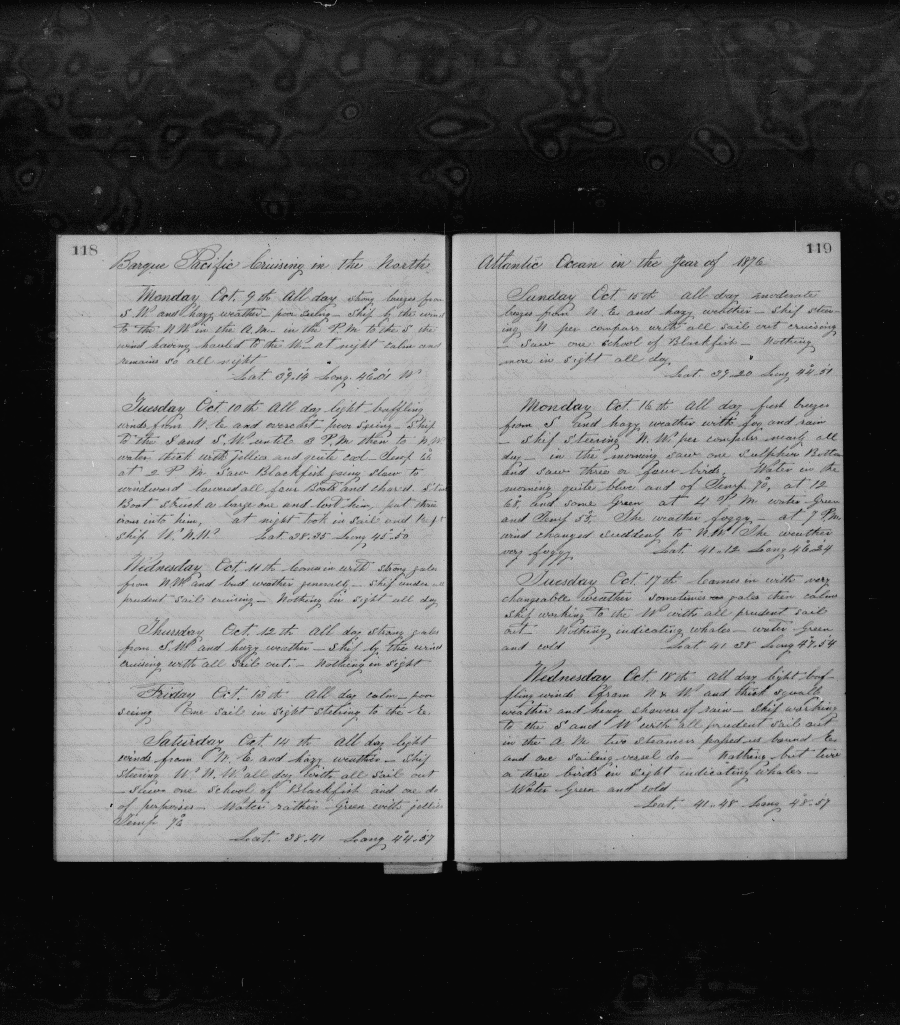 118
Barque Pacific Cruising in the North
Monday Oct. 9th All day strong breezes from
S.W. and hazy weather poor seeing Ship by the wind
to the N.W in the A.M. in the P.M. to the S the
wind having hauled to the W. at night calm and
remains so all night
Lat. 39.14 Long. 46.01 W
Tuesday Oct 10th All day light baffling
winds from N. E and overcast poor seeing Ship
to the S and S.W. until 2 P.M then to N.W
water thick with jellies and quite col Temp
at 2 P M Saw Blackfish going slow to
windward lowered all four Boats and chased
Boat struck a large one and lost him, put three
irons into him, at night took in sail and kept
Ship W.N.W. Lat 38.35 Long 45.50
Wednesday Oct. 11th Comes in with strong gales
from N.W. and bad weather generally Ship under
prudent sail cruising Nothing in sight all day
Thursday Oct. 12th All day strong gales
from S.W. and hazy weather Ship by the wind
cruising with all sail out. Nothing in Sight
Friday Oct. 13th All day calm poor
seeing One sail in sight steering to the E.
Saturday Oct. 14th All day light
winds from N.E. and hazy weather Ship
steering W.N.W. all day with all sail out
Saw one school of Blackfish and one do
of popoises Water rather Green with jellies
Temp 72
Lat. 38.41 Long 44.57
119
Atlantic Ocean in the Year of 1876
Sunday Oct 15th All day moderate
breezes from N. E. and hazy weather Ship steer-
ing N per compass with all sail out cruising
saw one school of Blackfish Nothing
more in sight all day
Lat. 39.20 Long 44.51
Monday Oct. 16th All day fresh breezes
from S and hazy weather with fog and rain
Ship steering N.W. per compass nearly all
day in the morning saw one Sulphur Bottom
and saw three or four birds. Water in the
morning quite blue and of Temp 70, at 12
68, and some Green at 4 P M water Green
and Temp 52. The weather foggy at 7 P.M.
wind changed suddenly to N.W. The weather
very foggy Lat. 41.12 Long 46.24
Tuesday Oct. 17th Comes in with very
changeable weather sometimes gales then calms
Ship working to the W with all prudent sail
out Nothing indicating whales water Green
and cold Lat. 41 38 Long 47.54
Wednesday Oct. 18th All day light baf-
fling winds from N & W and thick squally
weather and heavy showers of rain Ship working
to the S and W with all prudent sail out
in the A. M. two steamers passed us bound E.
and one sailing vessel do Nothing but two
or three birds in sight indicating whales
Water Green and cold
Lat. 41.48 Long 48.57